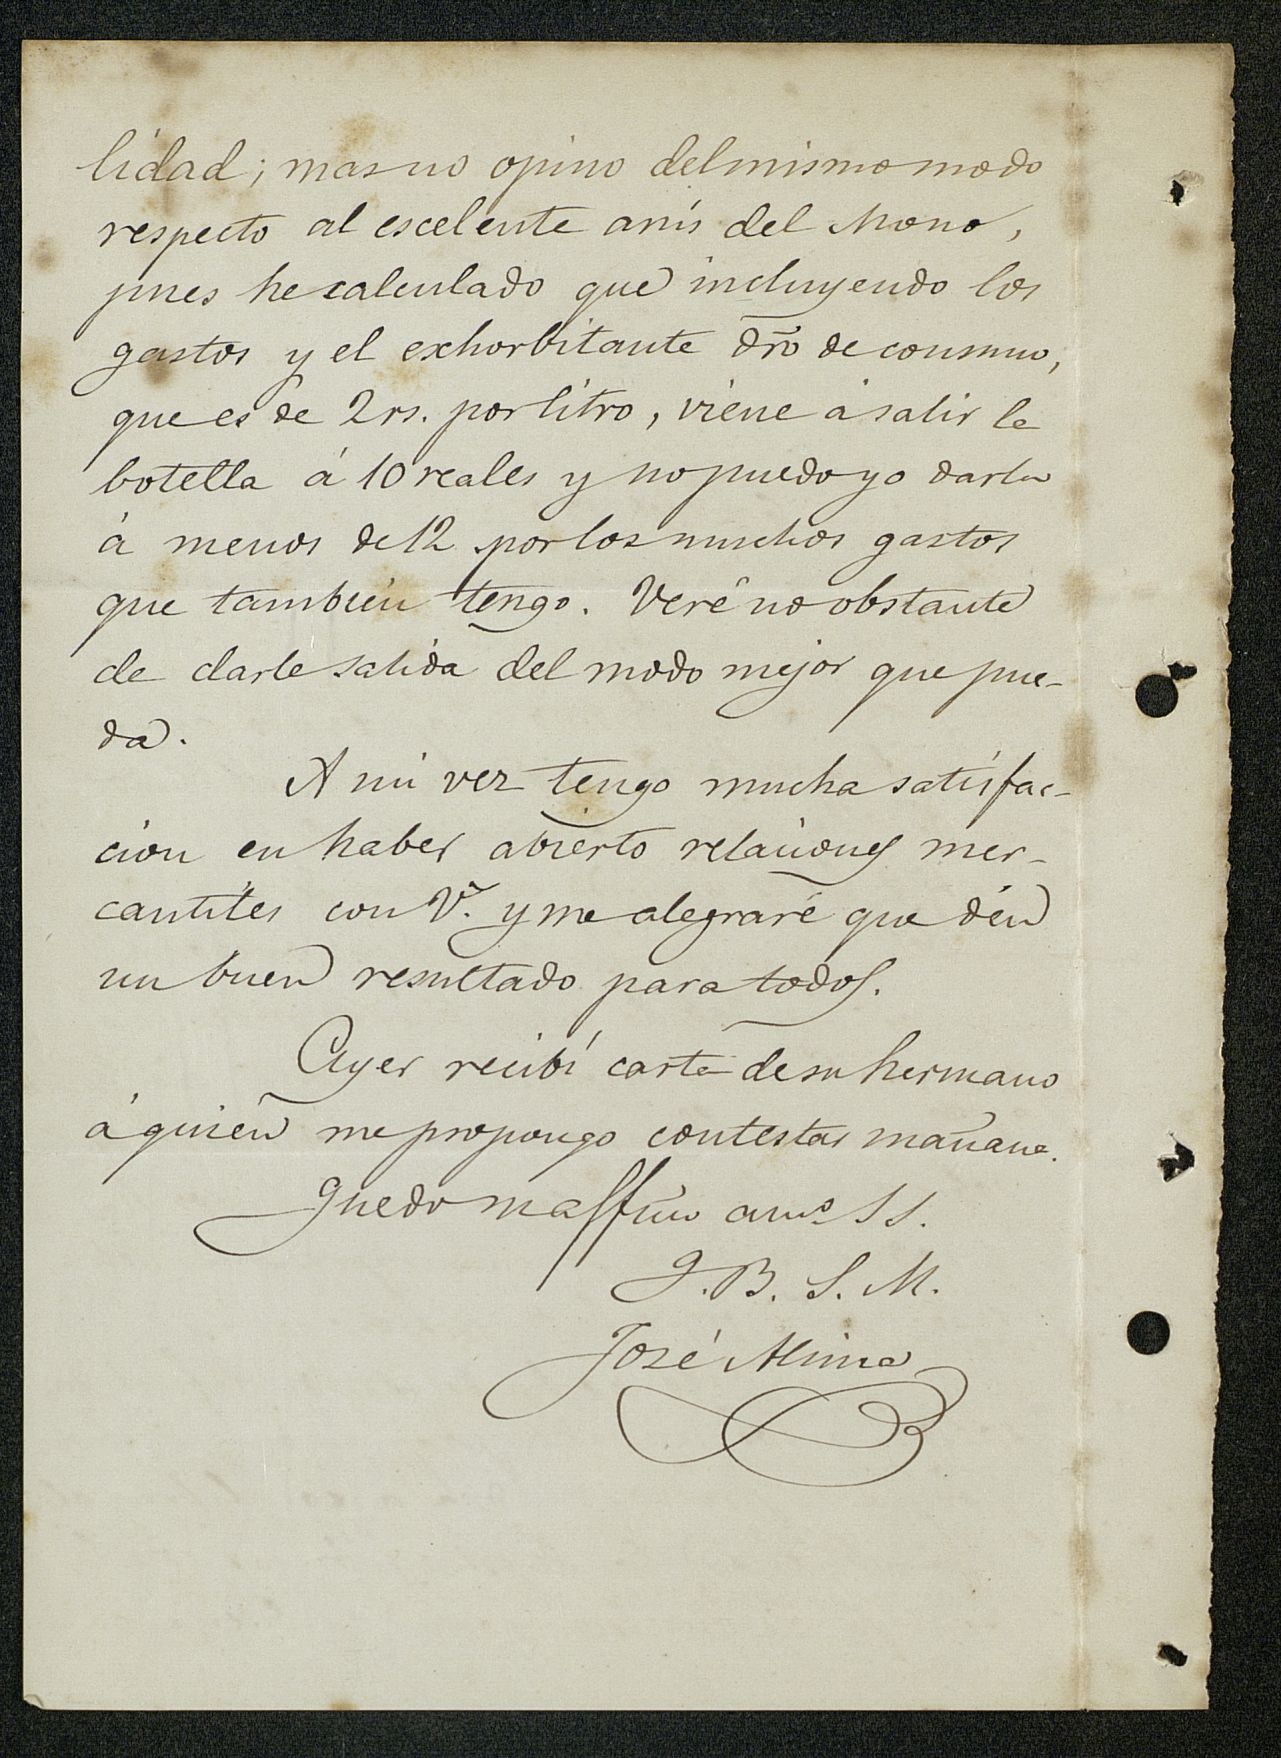 lidad; mas no opino del mismo modo
respecto al escelente anís del Mono,
pues he calculado que incluyendo los
gastos y el exhorbitante dr̃o de consumo,
que es de 2 rs. por litro, viene á salir la
botella á 10 reales y no puedo yo darla
á menos de 12 por los muchos gastos
que tambien tengo. Veré no obstante
de darle salida del modo mejor que pue-
da.
A mi vez tengo mucha satisfac-
cion en haber abierto relaciones mer-
cantiles con V. y me alegraré que dén
un buen resultado para todos.
Ayer recibí carta de su hermano
á quien me propongo contestar mañana.
Quedo mas fino amo SS.
Q. B. S. M.
José